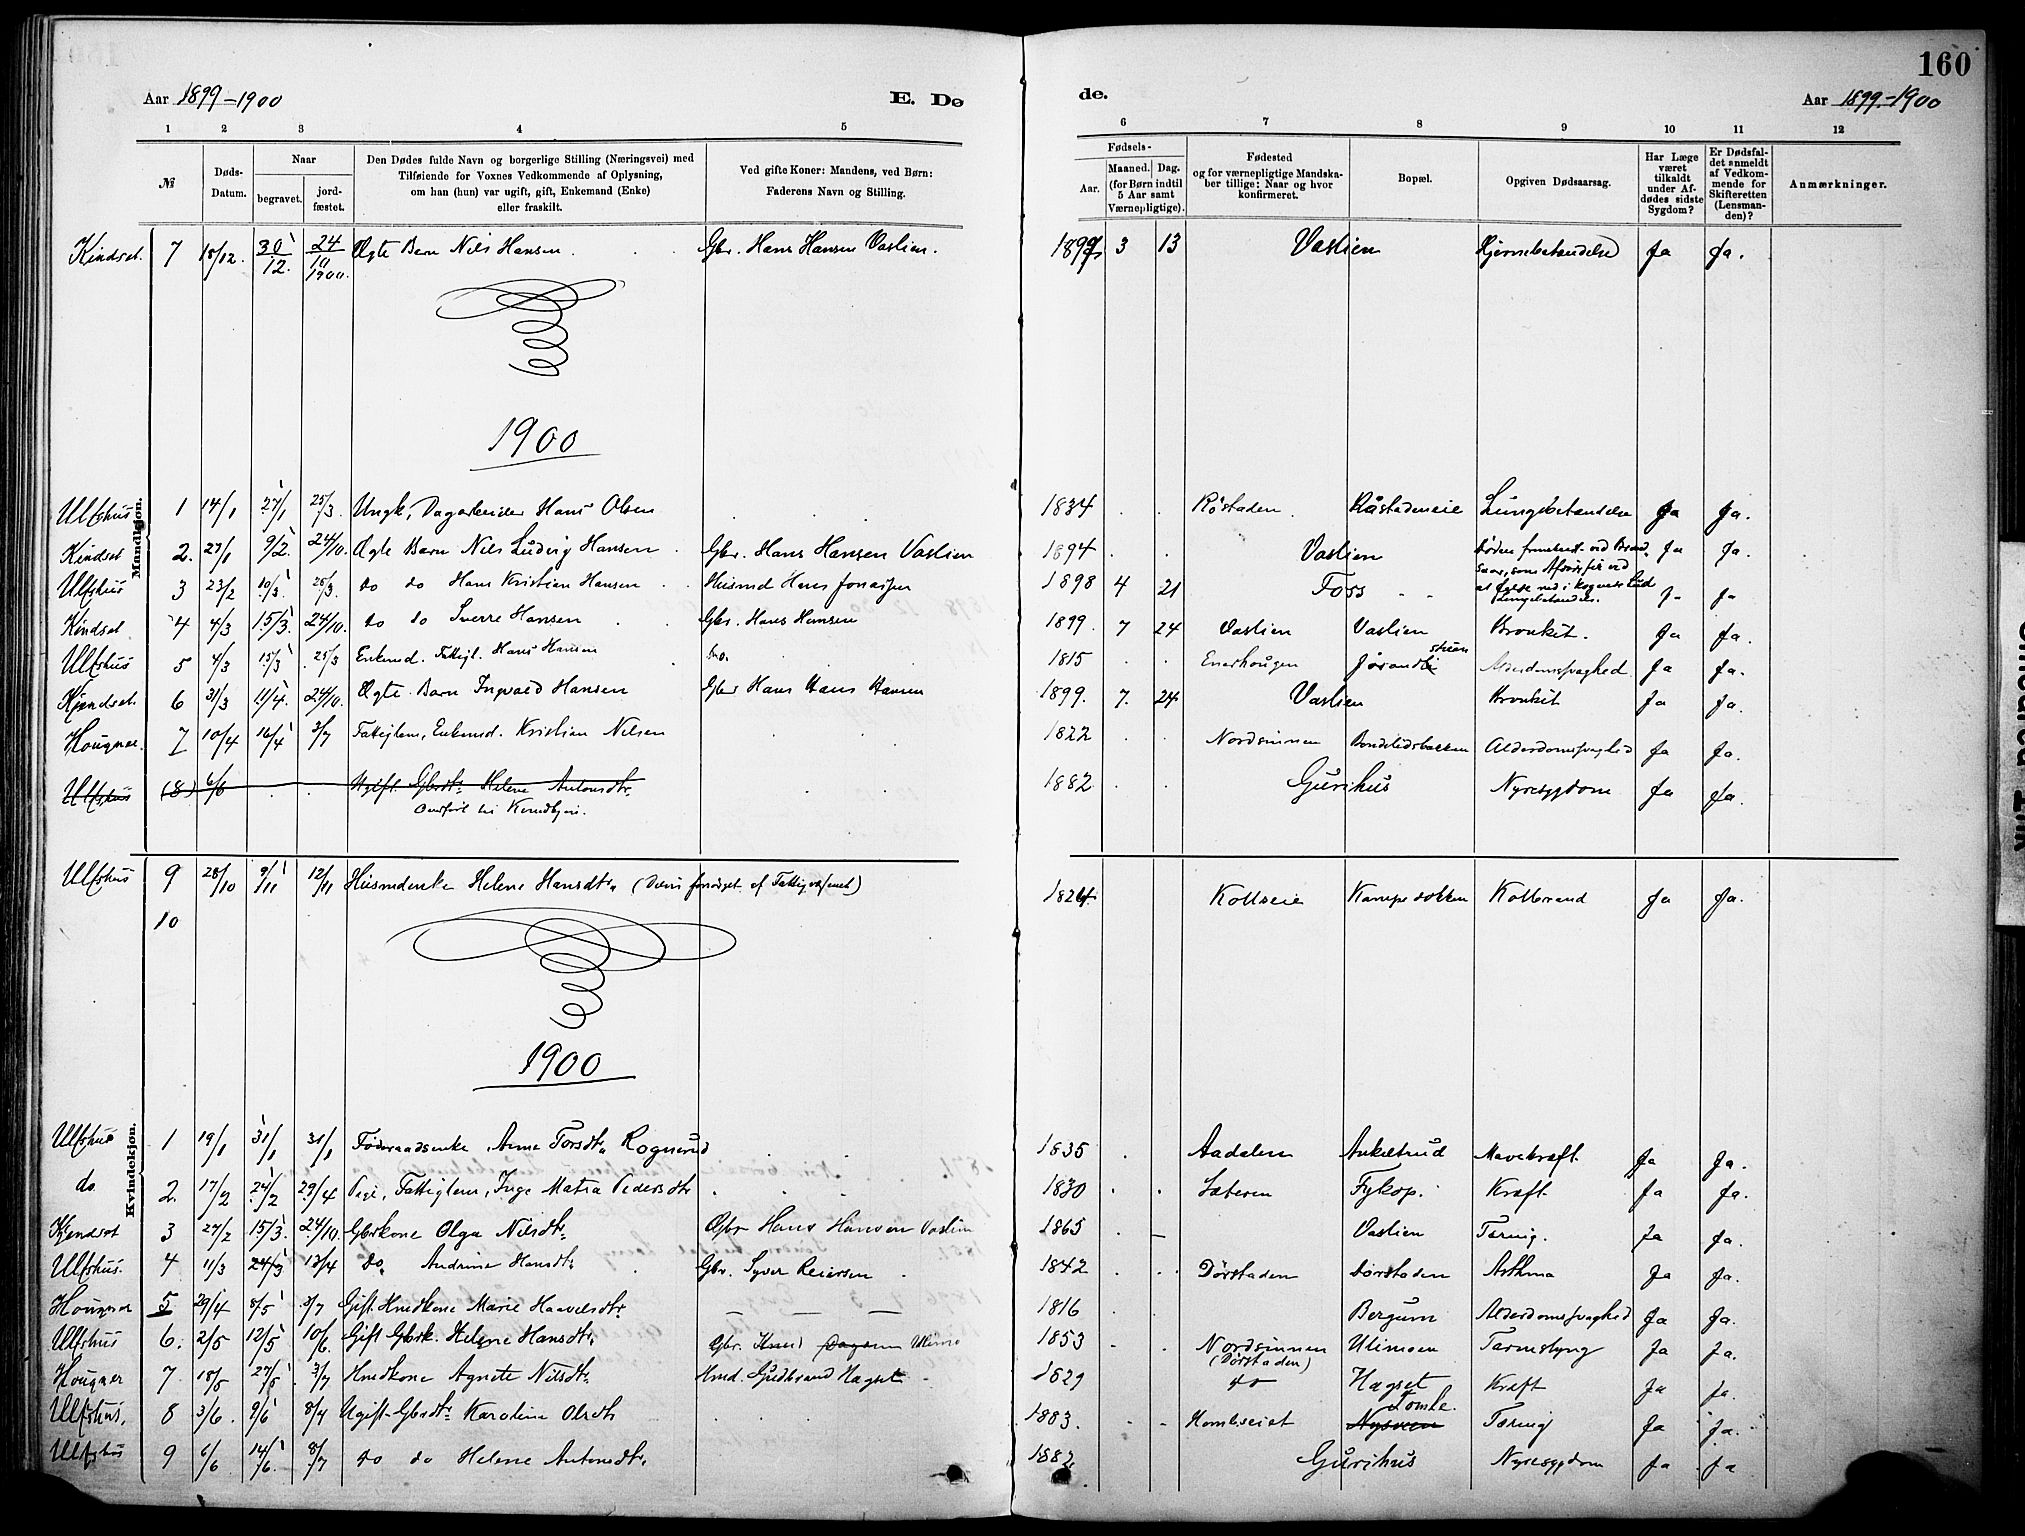 160
Aar 1899-1900 E. Dø de. Aar 1899-1900
1 2 3 4 5 6 7 8 9 10 11 12
№
Døds-Datum.
Naar
begravet.
jord-fæstet.
Den Dødes fulde Navn og borgerlige Stilling (Næringsvei) med
Tilføiende for Voxnes Vedkommende af Oplysning,
om han (hun) var ugift, gift, Enkemand (Enke)
eller fraskilt.
Ved gifte Koner: Mandens, ved Børn:
Faderens Navn og Stilling.
Fødsels-
Aar.
Maaned. Dag.
(for Børn indtil
5 Aar samt
Værnepligtige).
Fødested
og for værnepligtige Mandska-
ber tillige: Naar og hvor
konfirmeret.
Bopæl.
Opgiven Dødsaarsag.
Har Læge
været
tilkaldt
under Af-
dødes sidste
Sygdom?
Er Dødsfal-
det anmeldt
af Vedkom-
mende for
Skifteretten
(Lensman-
den)?
Anmærkninger.
Kindset. 7 18/12. 30/12. 24/10 1900. Ægte Barn Nils Hansen. Gbr. Hans Hansen Vaslien. 1899 3 13 Vaslien Hjernebetændelse Ja Ja.
1900
Mandkjøn.
Ulfshus 1 14/1 27/1 25/3. Ungk, Dagarbeider Hans Olsen 1834 Røstaden. Lungebetændelse Ja Ja.
Kindset 2. 27/1 9/2. 24/10. Ægte Barn Nils Ludvig Hansen Gbr. Hans Hansen Vaslien 1894 Vaslien Ja Ja.
Ulfshus 3 23/2 10/3. 25/3. do do Hans Kristian Hansen Husmd Hans 1898 4 21 Foss Ja Ja
Kindset 4 4/3 15/3. 24/10. do do Sverre Hansen Gbr. Hans Hansen 1899. 7 24 Vaslien Vaslien Bronkit. Ja Ja.
Ulfshus 5 4/3 15/3 25/3 Enkmd. Fattigl. Hans Hansen 1815 Enerhougen Alderdomssvaghed Ja Ja.
Kjendset. 6 31/3 11/4. 24/10. Ægte Barn Ingvald Hansen Gbr Hans Hans Hansen 1899. 7. 24 Vaslien Bronkit Ja Ja.
Hougner. 7 10/4 16/4 3/7 Fattiglem, Enkemd. Kristian Nilsen 1822 Nordsinnen Bondelidsbakken Alderdomssvaghed Ja Ja.
Ulfshus (8) 6/6 Ugift Gbrdtr. Helene Antonsdtr. 1882 Gurihus Nyresygdom Ja Ja.
Overført til Kvindkjøn.
Ulfshus 9 28/10 9/11 12/11 Husmdenke Helene Hansdtr. 1824 Kollseie Koldbrand Ja Ja.
10
1900
Kvindekjøn.
Ulfshus 1 19/1 31/1 31/1 Føderaadsenke Anne Torsdtr. Rognerud 1835 Aadalen Mavekræft. Ja Ja.
do. 2. 17/2 24/2 29/4 Pige, Fattiglem, Inge Matea Pedersdtr 1830 Sæteren Fykop. Kræft. Ja Ja.
Kjendset 3 27/2 15/3. 24/10. Gbrkone Olga Nilsdtr. Gbr Hans Hansen Vaslien 1865 Vaslien Tæring. Ja Ja.
Ulfshus. 4 11/3 24/3 13/4 do. Andrine Hansdtr. Gbr. Syver Reiersen 1842 Dørstaden Dørstaden Asthma Ja Ja.
Hougner 5 29/4 8/5 3/7 Gift Hmdkone Marie Haavelsdtr. 1816 Bergum Alderdomssvaghed Ja Ja.
Ulfshus 6. 2/5 12/5 10/6. Gift Gbrk. Helene Hansdtr. Gbr. Knud 1853 Nordsinnen (Dørstaden) Ulimoen Tarmslyng Ja Ja.
Hougner 7. 18/5 27/5 3/7 Hmdkone Agnete Nilsdtr. Hmd. Gudbrand Hagset 1829 do Hagset Kræft Ja Ja.
Ulfshus. 8 3/6. 9/6 8/7 Ugift Gbrdtr. Karoline Olsdtr 1883. Tomle. Nysveen Tæring Ja Ja.
Ulfshus 9 6/6 14/6. 8/7 do do Helene Antonsdtr. 1882 Gurihus Nyresygdom Ja Ja